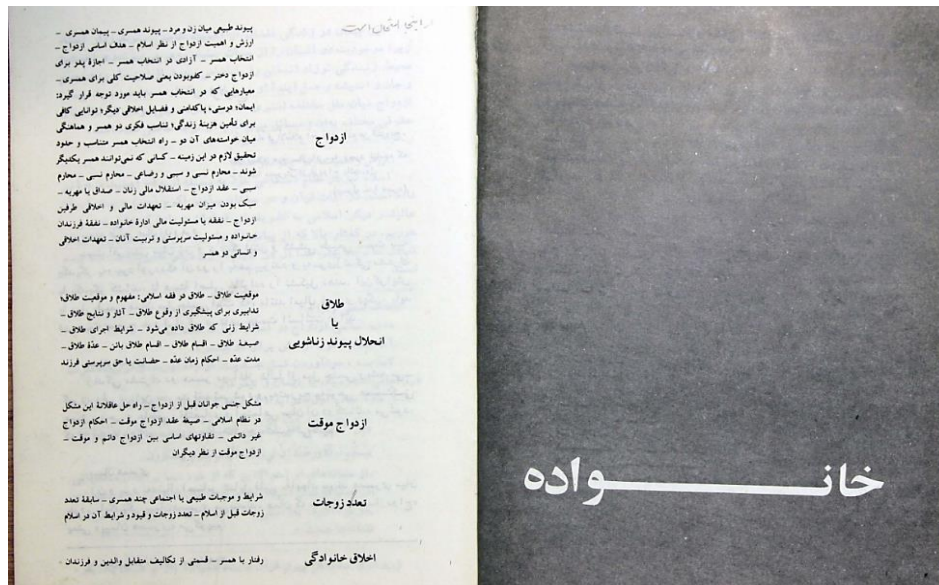 خانواده
ازدواج
پیوند طبیعی میان زن و مرد – پیوند همسری – پیمان همسری –
ارزش و اهمیت ازدواج از نظر اسلام – هدف اساسی ازدواج –
انتخاب همسر – آزادی در انتخاب همسر – اجازهٔ پدر برای
ازدواج دختر – کفوبودن یعنی صلاحیت کلی برای همسری –
معیارهایی که در انتخاب همسر باید مورد توجه قرار گیرد:
ایمان؛ درستی، پاکدامنی و فضایل اخلاقی دیگر؛ توانایی کافی
برای تأمین هزینهٔ زندگی؛ تناسب فکری دو همسر و هماهنگی
میان خواسته‌های آن دو – راه انتخاب همسر متناسب و حدود
تحقیق لازم در این زمینه – کسانی که نمی‌توانند همسر یکدیگر
شوند – محارم نسبی و سببی و رضاعی – محارم نسبی – محارم
سببی – عقد ازدواج – استقلال مالی زنان – صداق یا مهریه –
سبک بودن میزان مهریه – تعهدات مالی و اخلاقی طرفین
ازدواج – نفقه یا مسئولیت مالی ادارهٔ خانواده – نفقهٔ فرزندان
خانواده و مسئولیت سرپرستی و تربیت آنان – تعهدات اخلاقی
و انسانی دو همسر
طلاق
یا
انحلال پیوند زناشویی
موقعیت طلاق – طلاق در فقه اسلامی: مفهوم و موقعیت طلاق؛
تدابیری برای پیشگیری از وقوع طلاق – آثار و نتایج طلاق –
شرایط زنی که طلاق داده می‌شود – شرایط اجرای طلاق –
صیغهٔ طلاق – اقسام طلاق – اقسام طلاق بائن – عدّهٔ طلاق –
مدت عدّه – احکام زمان عدّه – حضانت یا حق سرپرستی فرزند
ازدواج موقت
مشکل جنسی جوانان قبل از ازدواج – راه حل عاقلانهٔ این مشکل
در نظام اسلامی – صیغهٔ عقد ازدواج موقت – احکام ازدواج
غیر دائمی – تفاوتهای اساسی بین ازدواج دائم و موقت –
ازدواج موقت از نظر دیگران
تعدّد زوجات
شرایط و موجبات طبیعی یا اجتماعی چند همسری – سابقهٔ تعدد
زوجات قبل از اسلام – تعدد زوجات و قیود و شرایط آن در اسلام
اخلاق خانوادگی
رفتار با همسر – قسمتی از تکالیف متقابل والدین و فرزندان